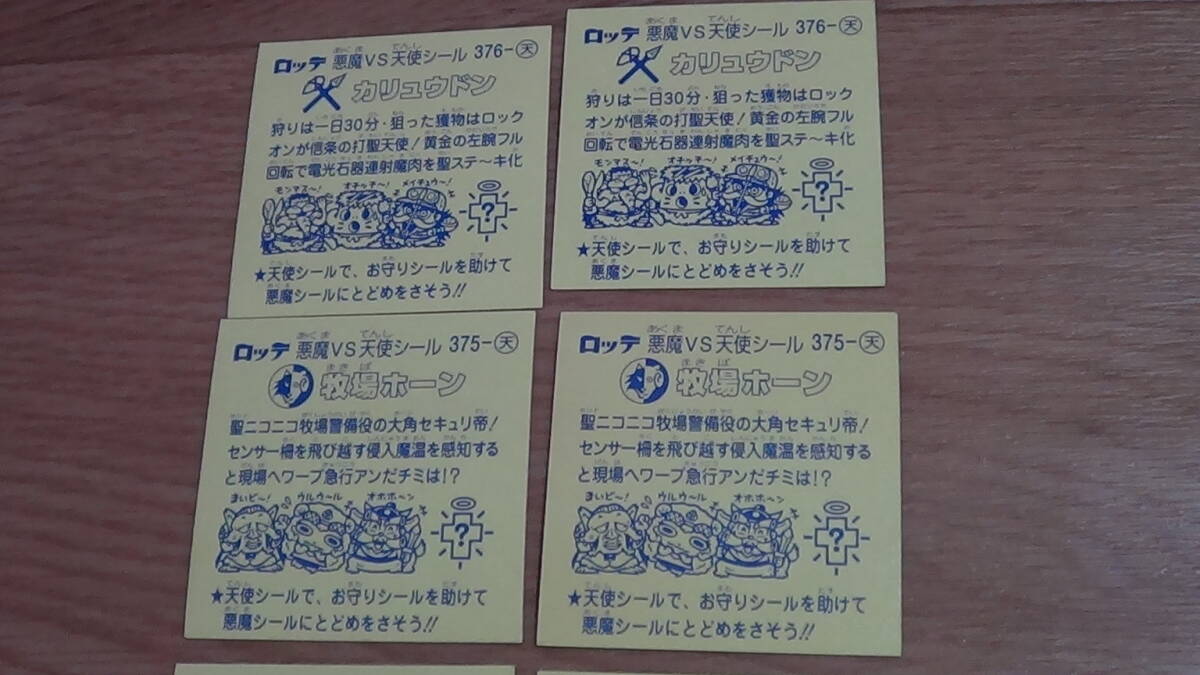 ロッテ 悪魔VS天使シール 376-天
カリュウドン
狩りは一日30分・狙った獲物はロック
オンが信条の打聖天使！黄金の左腕フル
回転で電光石器連射魔肉を聖ステ〜キ化
モンマス〜！ オチッチ〜！ メイチュウ〜！
?
★天使シールで、お守りシールを助けて
悪魔シールにとどめをさそう!!
ロッテ 悪魔VS天使シール 376-天
カリュウドン
狩りは一日30分・狙った獲物はロック
オンが信条の打聖天使！黄金の左腕フル
回転で電光石器連射魔肉を聖ステ〜キ化
モンマス〜！ オチッチ〜！ メイチュウ〜！
?
★天使シールで、お守りシールを助けて
悪魔シールにとどめをさそう!!
ロッテ 悪魔VS天使シール 375-天
牧場ホーン
聖ニコニコ牧場警備役の大角セキュリ帝！
センサー柵を飛び越す侵入魔温を感知する
と現場へワープ急行アンだチミは!?
まいピ〜！ ウルウ〜ル オホホ〜ン
?
★天使シールで、お守りシールを助けて
悪魔シールにとどめをさそう!!
ロッテ 悪魔VS天使シール 375-天
牧場ホーン
聖ニコニコ牧場警備役の大角セキュリ帝！
センサー柵を飛び越す侵入魔温を感知する
と現場へワープ急行アンだチミは!?
まいピ〜！ ウルウ〜ル オホホ〜ン
?
★天使シールで、お守りシールを助けて
悪魔シールにとどめをさそう!!